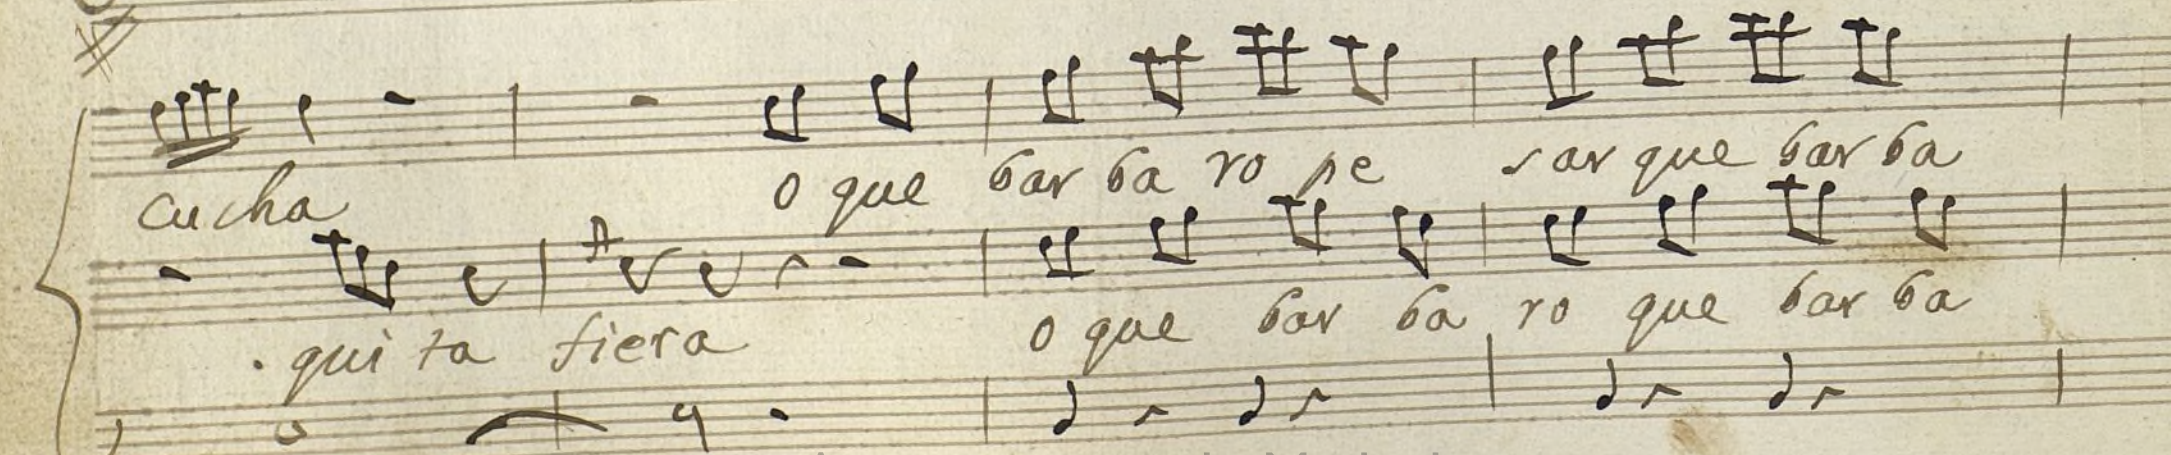 cucha o que bar ba ro pe sar que bar ba
quita fiera o que bar ba ro que bar ba